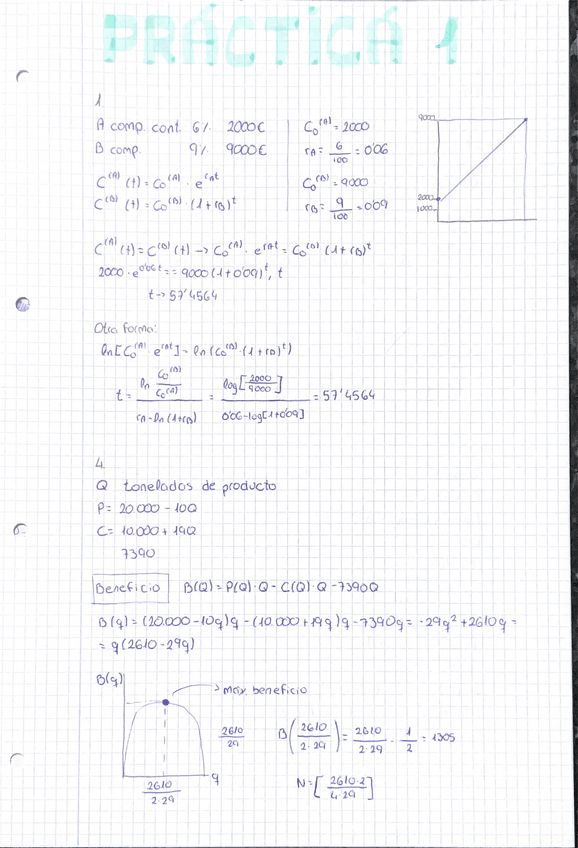 PRÁCTICA 1
1.
A comp. cont. 6%. 2000€
B comp. 9%. 9000€
C^(A) (t) = C₀^(A) · e^(r_A t)
C^(B) (t) = C₀^(B) · (1+r_B)^t
C₀^(A) = 2000
r_A = 6/100 = 0'06
C₀^(B) = 9000
r_B = 9/100 = 0'09
9000
2000
1000
C^(A) (t) = C^(B) (t) → C₀^(A) · e^(r_A t) = C₀^(B) (1+r_B)^t
2000 · e^(0'06 t) == 9000 (1+0'09)^t, t
t → 57'4564
Otra forma:
ln[C₀^(A) · e^(r_A t)] = ln (C₀^(B) · (1+r_B)^t)
t = (ln C₀^(B)/C₀^(A)) / (r_A - ln (1+r_B)) = log[2000/9000] / (0'06 - log[1+0'09]) = 57'4564
4.
Q toneladas de producto
P = 20.000 - 10Q
C = 10.000 + 19Q
7390
Beneficio B(Q) = P(Q) · Q - C(Q) · Q - 7390Q
B(q) = (20.000 - 10q)q - (10.000 + 19q)q - 7390q = -29q² + 2610q =
= q(2610 - 29q)
B(q)
máx. beneficio
2610/29
q
2610/(2·29)
B(2610/(2·29)) = 2610/(2·29) · 1/2 = 1305
N = [2610·2/(4·29)]